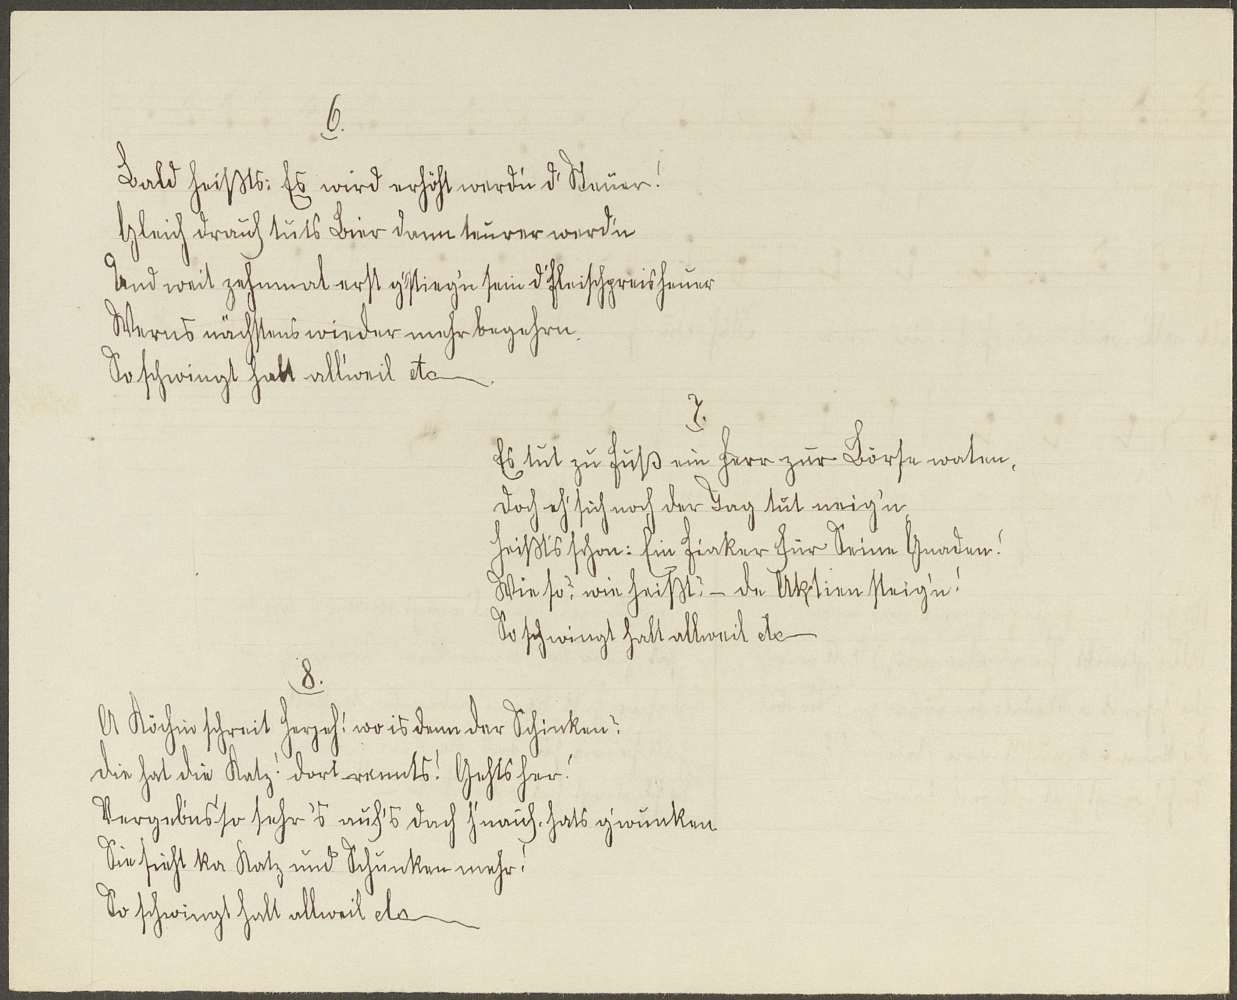 6.
Bald heißts: Es wird erhöht werd'n d' Steuer!
Gleich drauf tuts Bier dann teurer werd'n
Und weil zehnmal erst g'stieg'n sein d'Fleischpreis heuer
Werns nächstens wieder mehr begehrn.
So schwingt halt all'weil etc
7.
Es tut zu Fuß ein Herr zur Börse waten,
Doch eh' sich noch der Tag tut neig'n
Heißt's schon: Ein Fiaker für Seine Gnaden!
Wie so? wie heißt? – de Aktien steig'n!
So schwingt halt allweil etc
8.
A Köchin schreit Herrjeh! wo is denn der Schinken?
Die hat die Katz! dort rennts! Gehts her!
Vergeb'ns so sehr 's auf's Dach h'nauf hats g'wunken
Sie sieht ka Katz und Schunken mehr!
So schwingt halt allweil etc